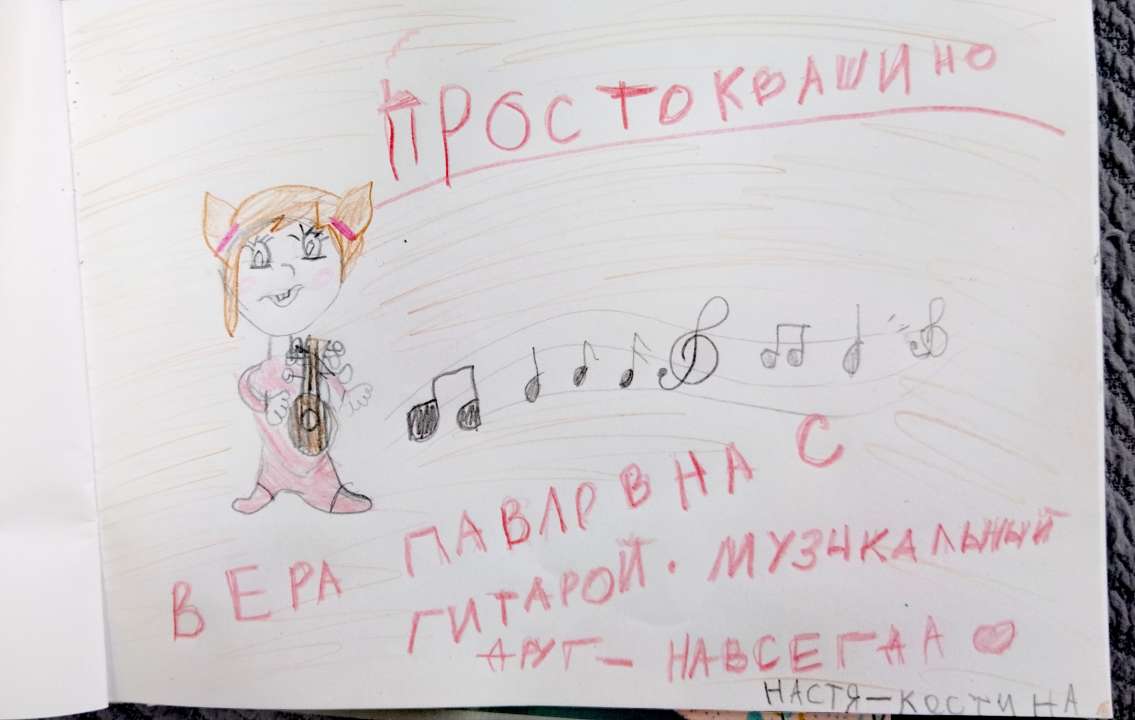 ПРОСТОКВАШИНО
ВЕРА ПАВЛРВНА С
ГИТАРОЙ. МУЗЫКАЛЬНЫЙ
ДРУГ - НАВСЕГДА
НАСТЯ-КОСТИНА